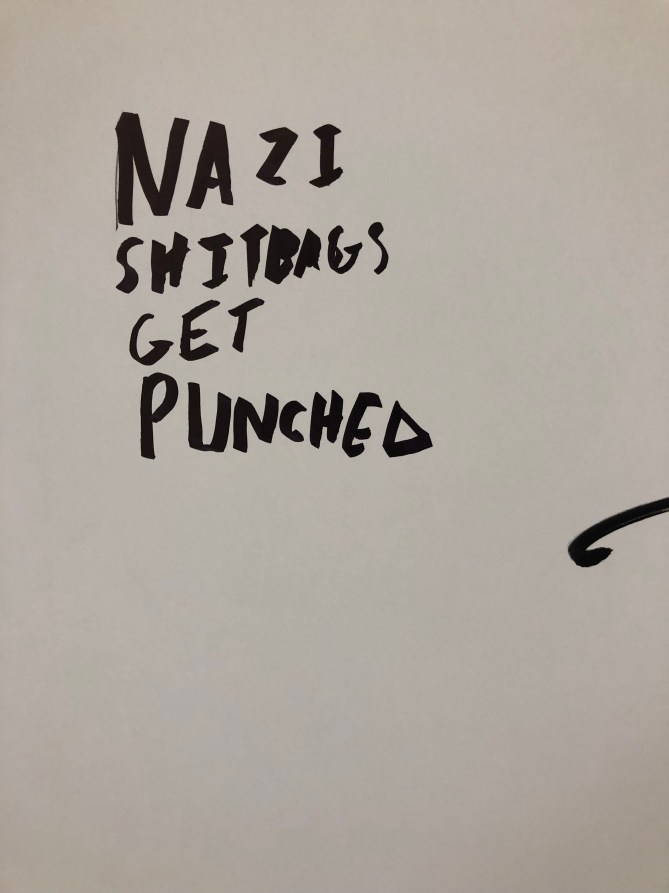 NAZI
SHITBAGS
GET
PUNCHED